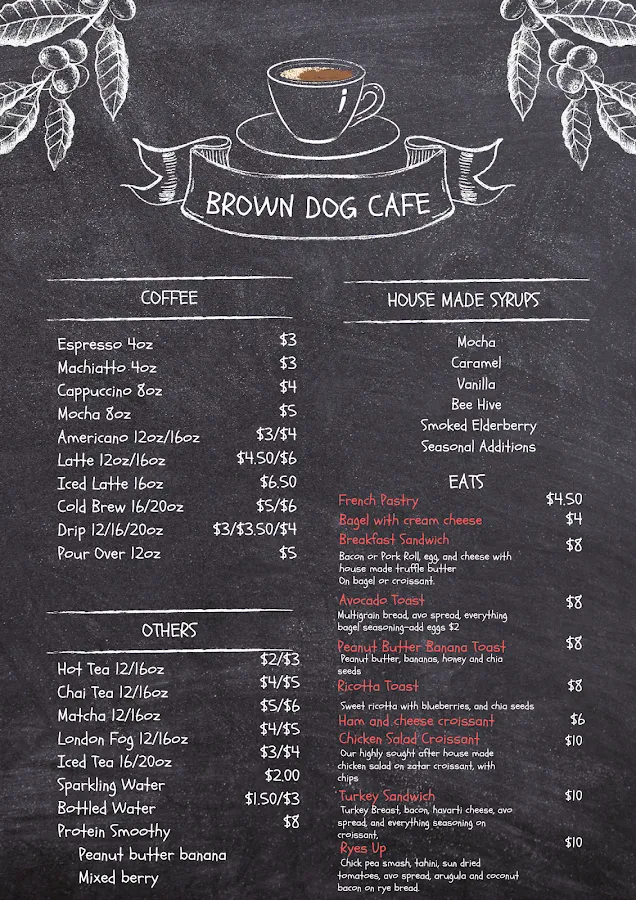 BROWN DOG CAFE
COFFEE
Espresso 4oz $3
Machiatto 4oz $3
Cappuccino 8oz $4
Mocha 8oz $5
Americano 12oz/16oz $3/$4
Latte 12oz/16oz $4.50/$6
Iced Latte 16oz $6.50
Cold Brew 16/20oz $5/$6
Drip 12/16/20oz $3/$3.50/$4
Pour Over 12oz $5
OTHERS
Hot Tea 12/16oz $2/$3
Chai Tea 12/16oz $4/$5
Matcha 12/16oz $5/$6
London Fog 12/16oz $4/$5
Iced Tea 16/20oz $3/$4
Sparkling Water $2.00
Bottled Water $1.50/$3
Protein Smoothy $8
Peanut butter banana
Mixed berry
HOUSE MADE SYRUPS
Mocha
Caramel
Vanilla
Bee Hive
Smoked Elderberry
Seasonal Additions
EATS
French Pastry $4.50
Bagel with cream cheese $4
Breakfast Sandwich $8
Bacon or Pork Roll, egg, and cheese with
house made truffle butter
On bagel or croissant.
Avocado Toast $8
Multigrain bread, avo spread, everything
bagel seasoning-add eggs $2
Peanut Butter Banana Toast $8
Peanut butter, bananas, honey and chia
seeds
Ricotta Toast $8
Sweet ricotta with blueberries, and chia seeds
Ham and cheese croissant $6
Chicken Salad Croissant $10
Our highly sought after house made
chicken salad on zatar croissant, with
chips
Turkey Sandwich $10
Turkey Breast, bacon, havarti cheese, avo
spread, and everything seasoning on
croissant,
Ryes Up $10
Chick pea smash, tahini, sun dried
tomatoes, avo spread, arugula and coconut
bacon on rye bread.